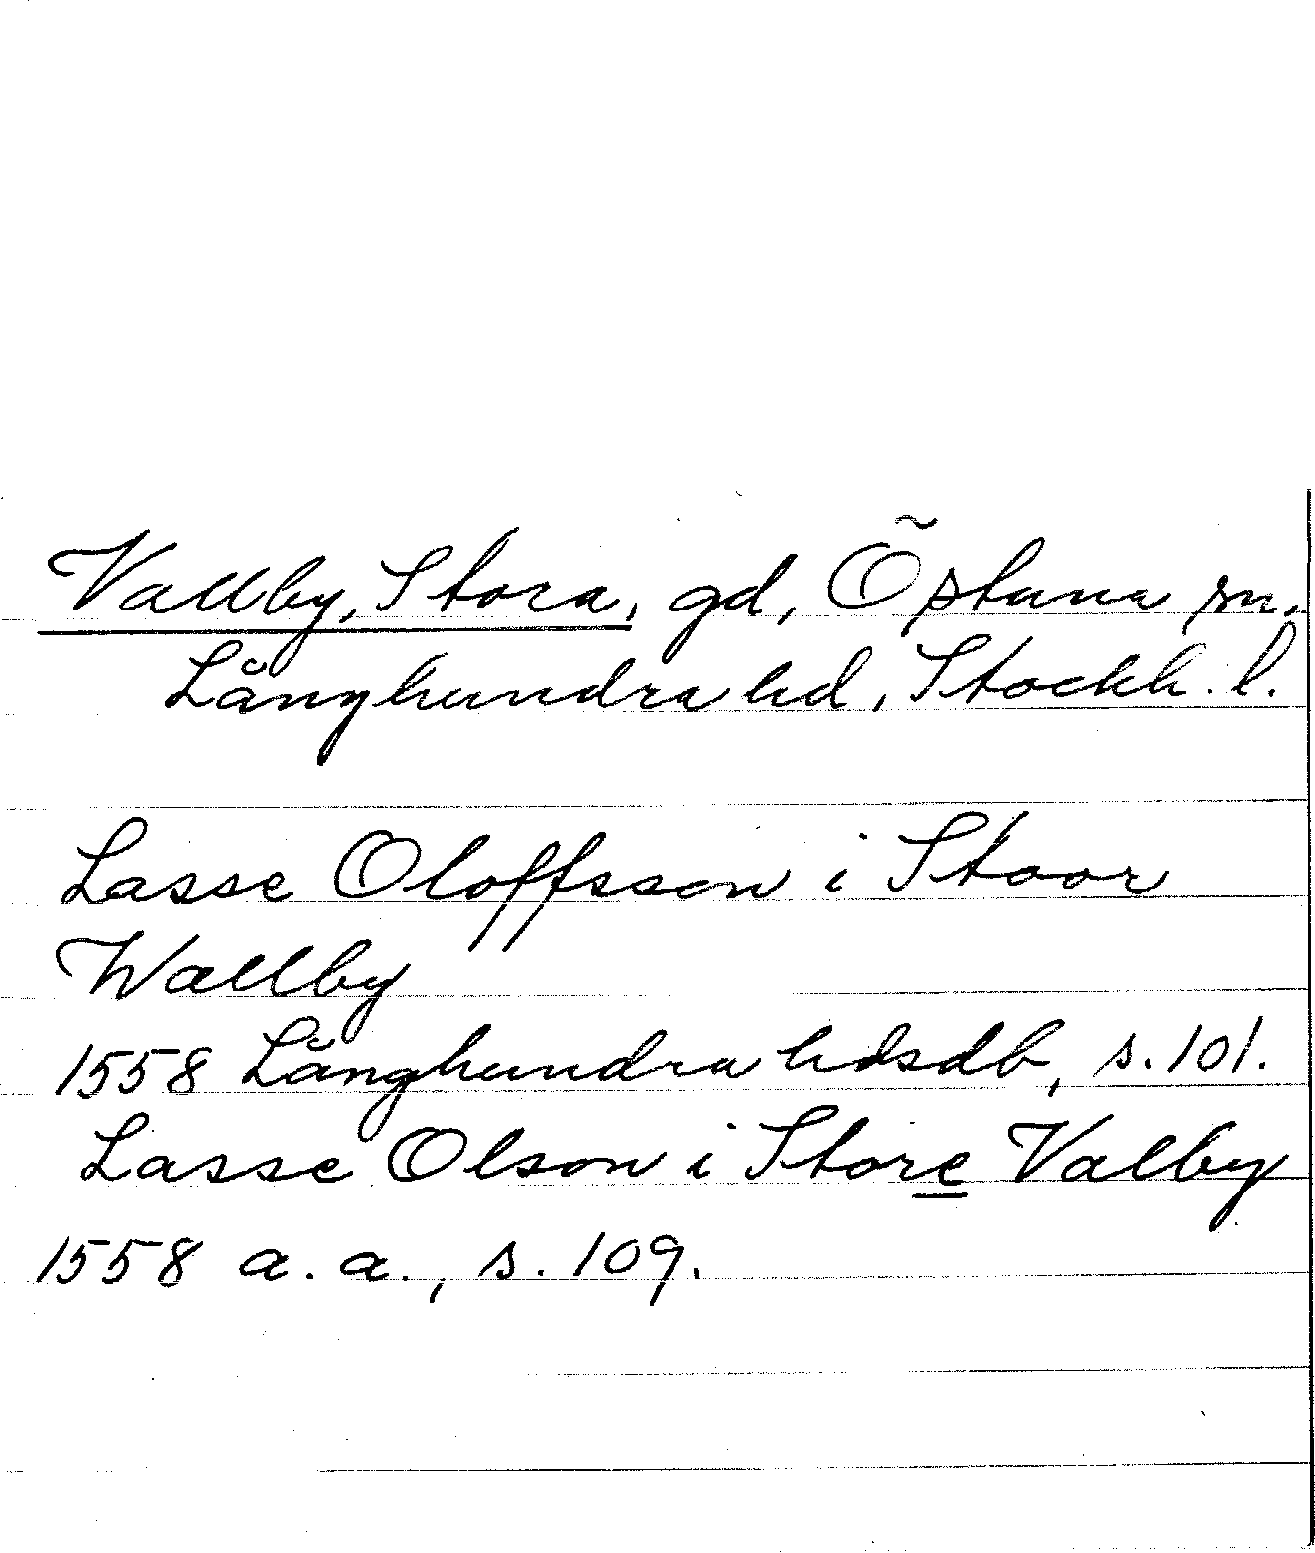 Vallby, Stora, gd, Östuna sn.
Långhundra hd, Stockh. l.
Lasse Oloffsson i Stoor
Wallby
1558 Långhundra hdsdb, s. 101.
Lasse Olson i Store Valby
1558 a. a., s. 109.